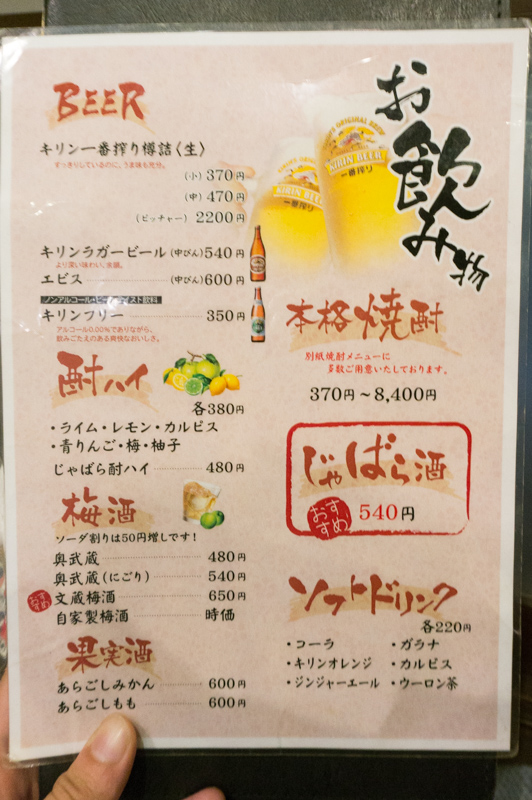 お飲み物
BEER
キリン一番搾り樽詰〈生〉
すっきりしているのに、うま味も充分。
(小) 370円
(中) 470円
(ピッチャー) 2200円
キリンラガービール (中びん) 540円
より深い味わい、実感。
エビス (中びん) 600円
ノンアルコール・ビールテイスト飲料
キリンフリー 350円
アルコール0.00%でありながら、
飲みごたえのある爽快なおいしさ。
KIRIN BEER
一番搾り
KIRIN BEER
一番搾り
酎ハイ
各380円
・ライム・レモン・カルピス
・青りんご・梅・柚子
じゃばら酎ハイ 480円
梅酒
ソーダ割りは50円増しです!
奥武蔵 480円
奥武蔵(にごり) 540円
おすすめ
文蔵梅酒 650円
自家製梅酒 時価
果実酒
あらごしみかん 600円
あらごしもも 600円
本格焼酎
別紙焼酎メニューに
多数ご用意いたしております。
370円〜8,400円
じゃばら酒
おすすめ
540円
ソフトドリンク
各220円
・コーラ ・ガラナ
・キリンオレンジ ・カルピス
・ジンジャーエール ・ウーロン茶